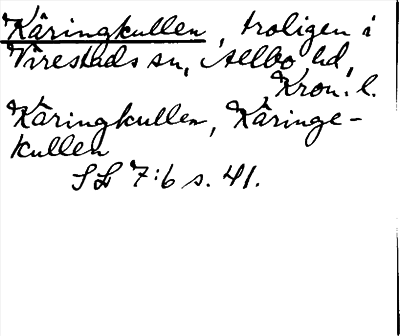 Käringkullen, troligen i
Virestads sn, Allbo hd,
Kron. l.
Käringkullen, Käringe-
kullen
SL 7:6 s. 41.